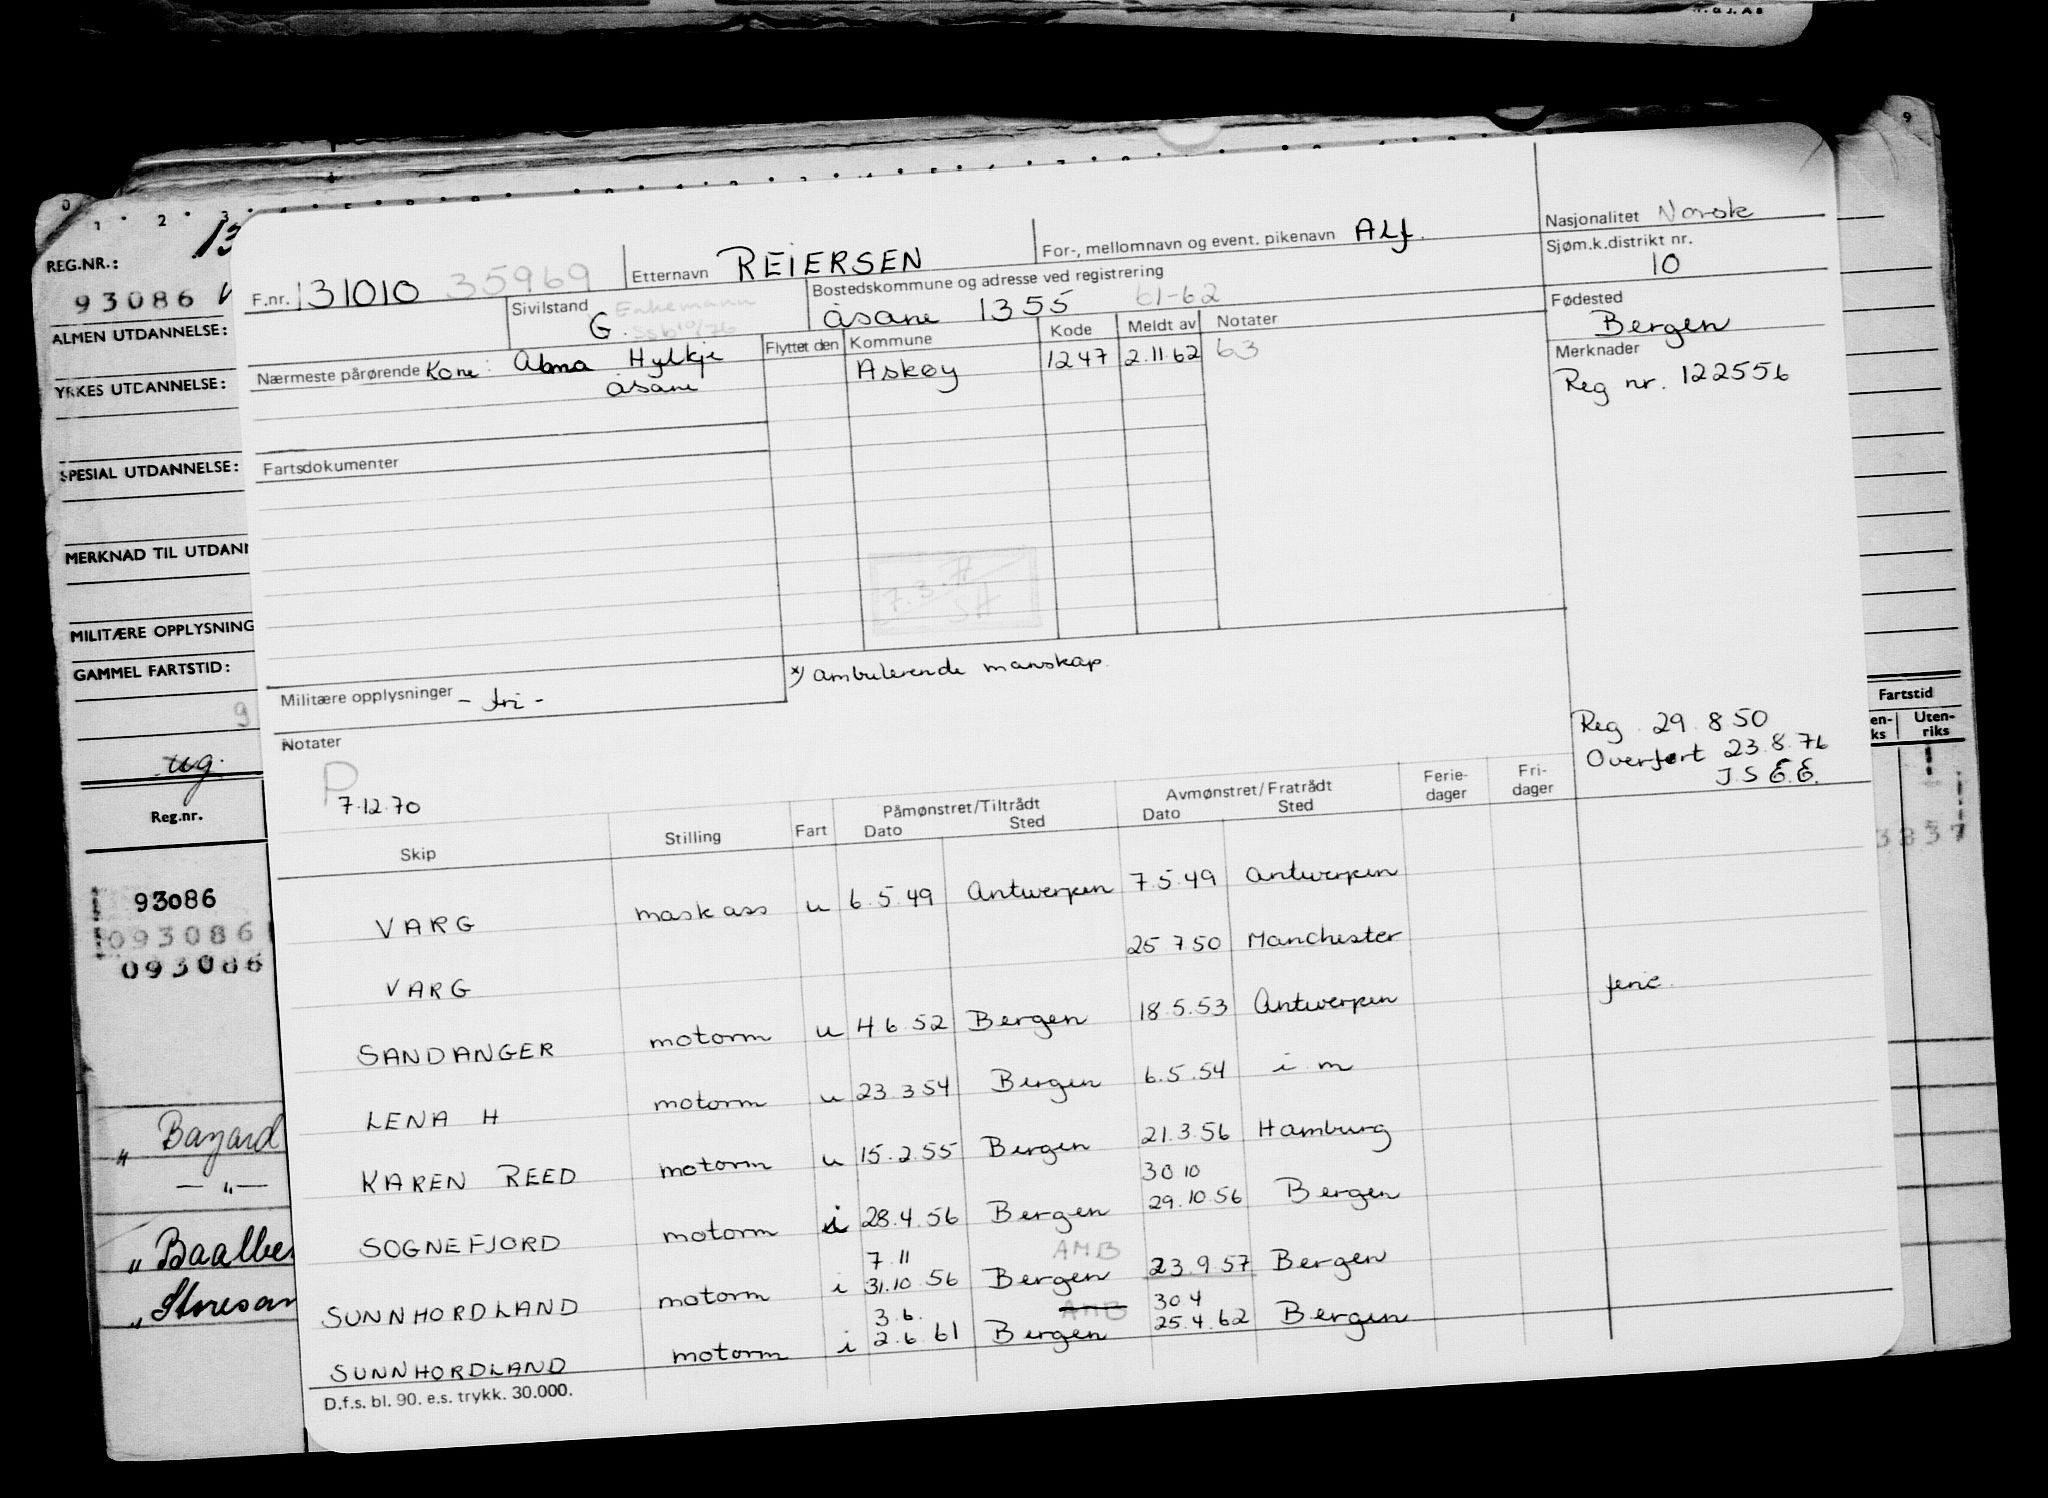 REG.NR.:
93086
ALMEN UTDANNELSE:
YRKES UTDANNELSE:
SPESIAL UTDANNELSE:
MERKNAD TIL UTDAN
MILITÆRE OPPLYSNING
GAMMEL FARTSTID:
ug.
Reg.nr.
93086
093086
093086
„ Bayard
— „ —
„ Baalbe
„ Storesan
Fartstid
en-ks Uten-riks
F.nr. 131010 35969 Etternavn REIERSEN For-, mellomnavn og event. pikenavn Alf. Nasjonalitet Norsk
Sjøm.k.distrikt nr. 10
Sivilstand G. Enkemann Bostedskommune og adresse ved registrering åsane 1355 61-62
Fødested Bergen
Nærmeste pårørende Kone: Alma Hylkje
åsane
Flyttet den Kommune Kode Meldt av Notater
Askøy 1247 2.11.62 63
Merknader
Reg nr. 122556
Fartsdokumenter
Militære opplysninger - fri -
x) ambulerende manskap.
Notater
P
7.12.70
Reg. 29.8.50
Overført 23.8.76
J.S E.E.
Skip Stilling Fart Påmønstret/Tiltrådt Dato Sted Avmønstret/Fratrådt Dato Sted Ferie-dager Fri-dager
VARG mask ass u 6.5.49 Antwerpen 7.5.49 Antwerpen
VARG 25 7.50 Manchester
SANDANGER motorm u 4 6.52 Bergen 18.5.53 Antwerpen ferie.
LENA H motorm u 23.3 54 Bergen 6.5.54 i m
KAREN REED motorm u 15.2.55 Bergen 21.3.56 Hamburg
30 10
SOGNEFJORD motorm i 28.4.56 Bergen 29.10.56 Bergen
7.11 AMB
SUNNHORDLAND motorm i 31.10.56 Bergen 23.9.57 Bergen
3.6. AMB 30 4
SUNNHORDLAND motorm i 2.6 61 Bergen 25.4.62 Bergen
D.f.s. bl. 90. e.s. trykk. 30.000.